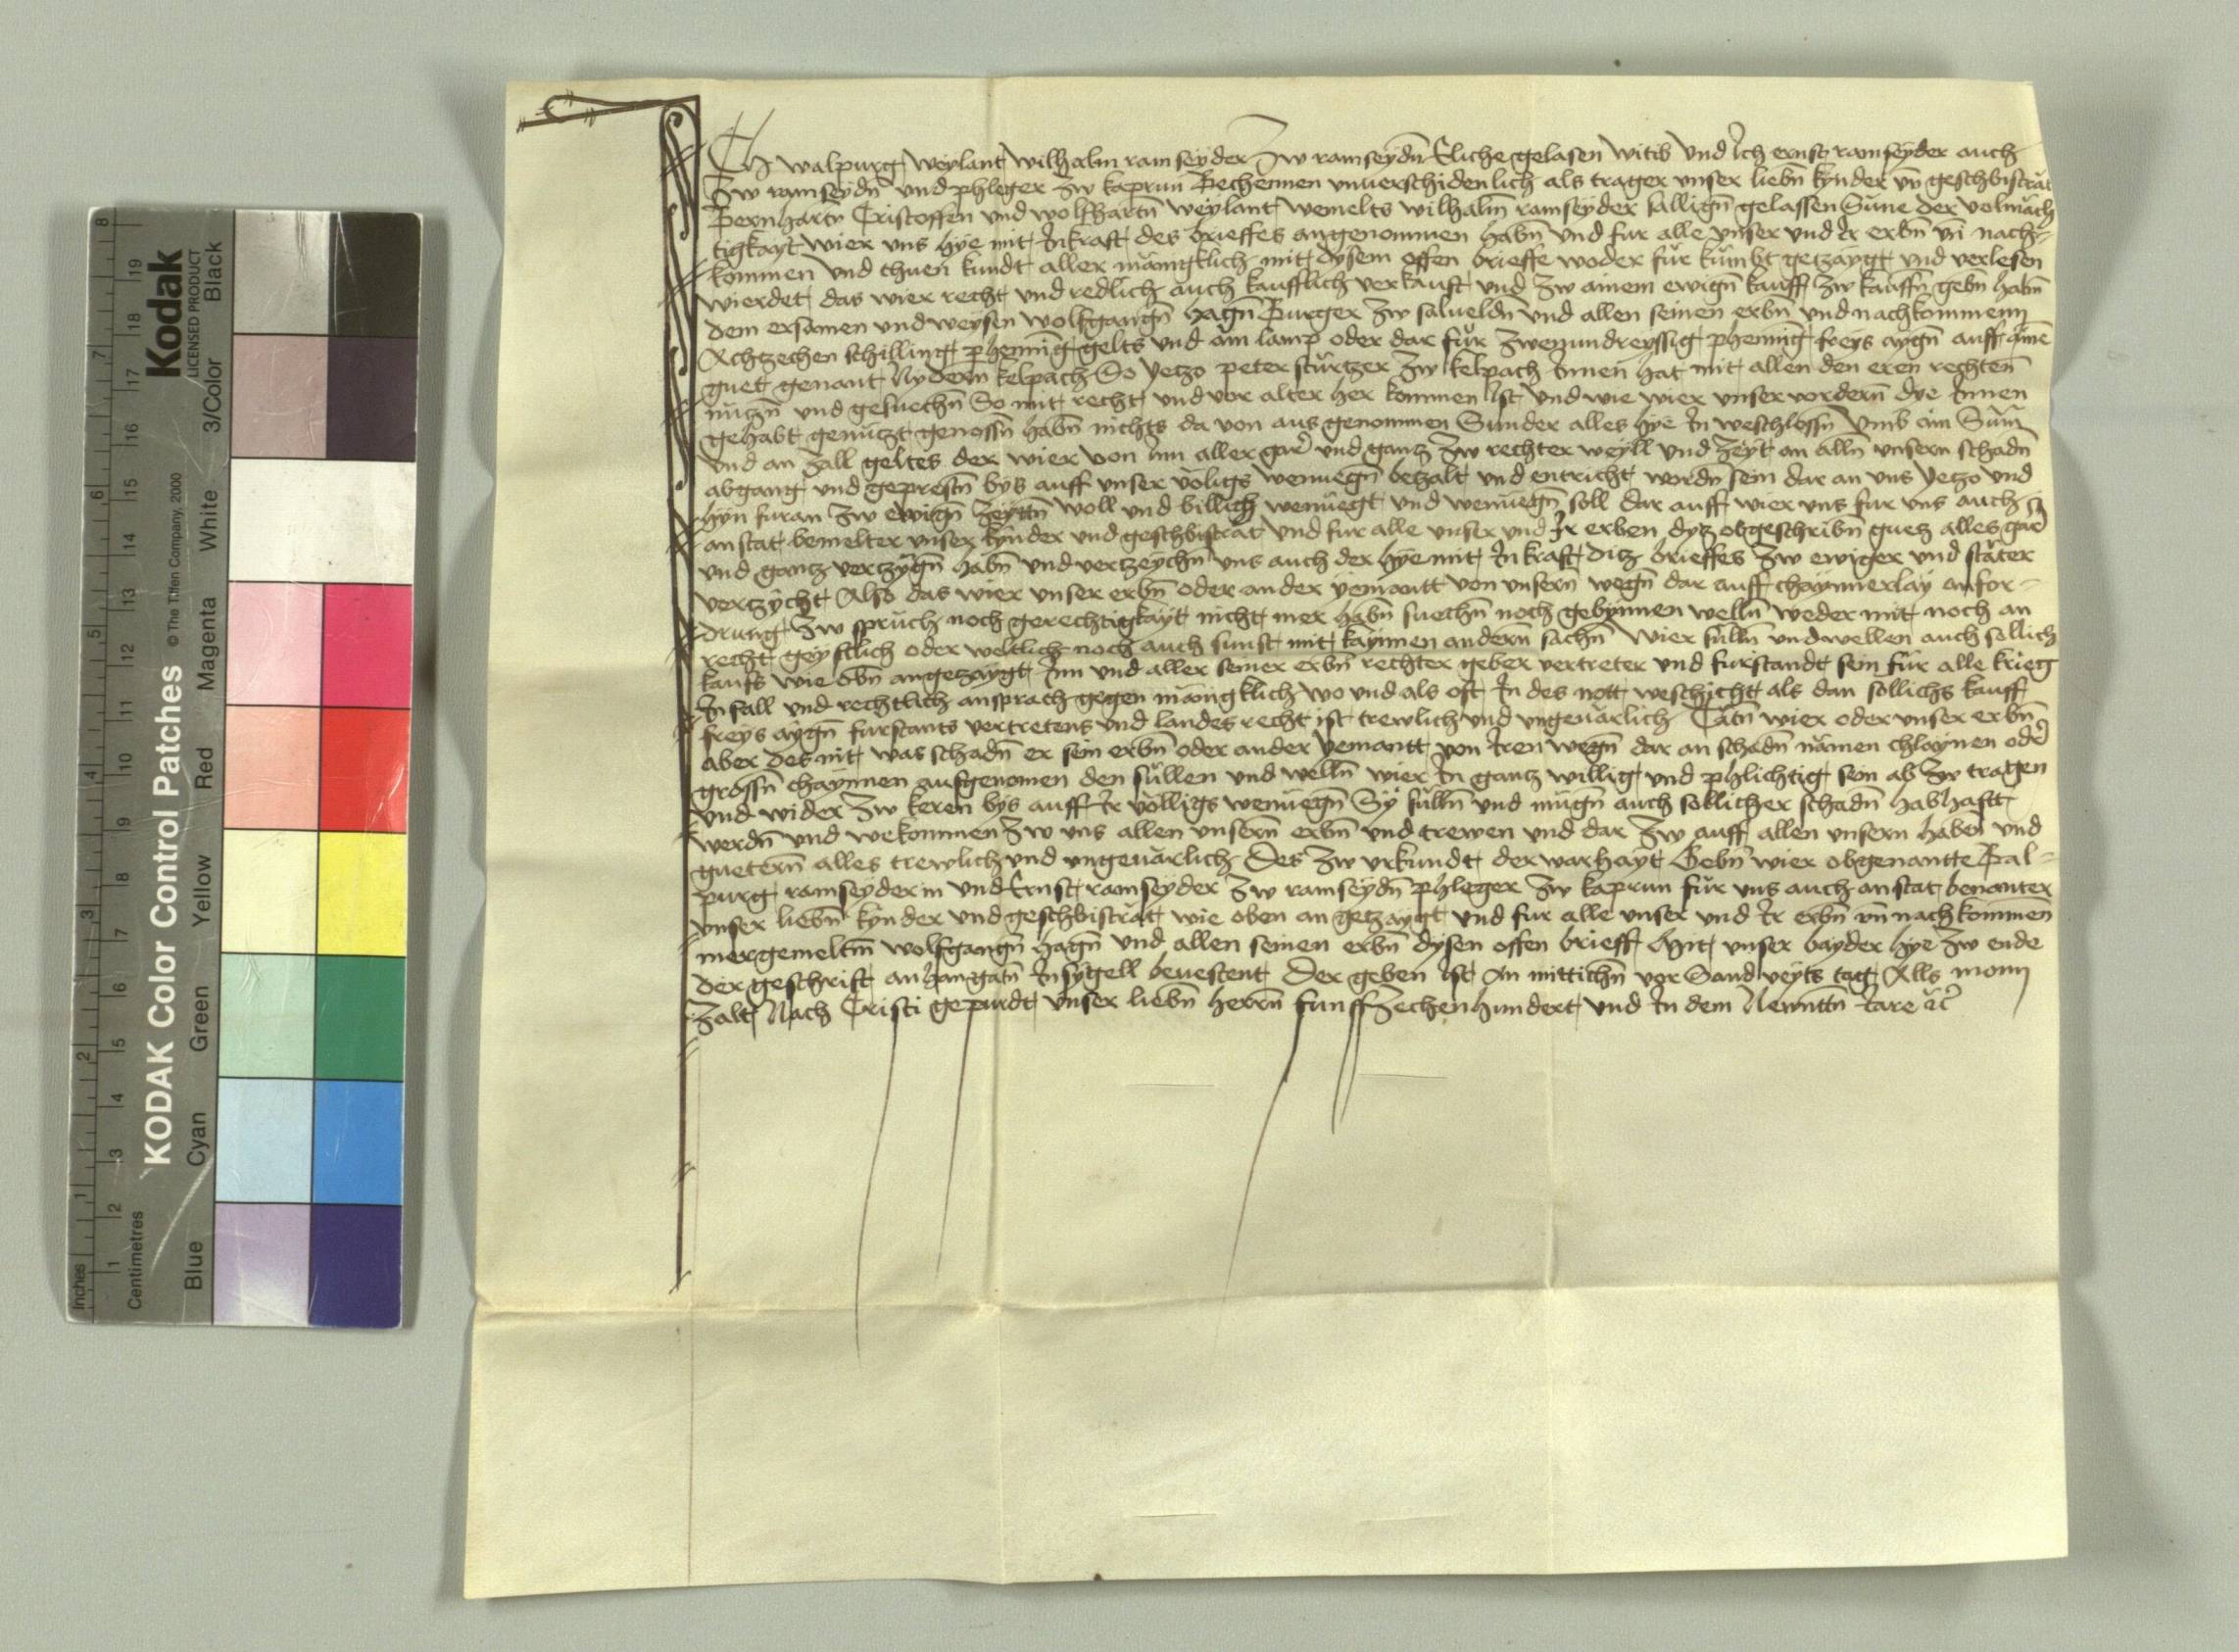 Ich walpurg weylant wilhalm ramseyder Zw ramseydn̄ Eliche gelasen witib vnd Ich ernst ramseyder auch
Zw ramseydn̄ vnd phleger Zw kaprun Bechennen vnuerschidenlich als trager vnser liebn̄ kynder vn̄ geschbistrat
Bernhartn Cristoffen vnd wolfhartn̄ weylant wemelts wilhalm̄ ramseyder sallign̄ gelassen Süne der volmäch
tigkayt wier vns hye mit Inkraft des brieffes angenommen habn̄ vnd fur alle vnser vnd Ir erbn̄ vn̄ nach-
kommen vnd thuen kundt aller mänigklich mit dysem offen brieffe woder für kumbt getzaygt vnd verlesen
wierdet das wier recht vnd redlich auch kaufflich verkauft vnd Zw ainem ewign̄ kauff Zw kauffn̄ gebn̄ habn̄
dem ersamen vnd weysen wolfgangn̄ hagn̄ Burger Zw salueldn̄ vnd allen seinen erbn̄ vnd nachkommenn
Achtzechen schilling phenning gelts vnd ain lamp oder dar für Zwenundreyssig phening freys aygn̄ auff aine
guet genant Nydern kelpach So yetzo peter stürtzer Zw kelpach Innen hat mit allen den eren rechten
nützn̄ vnd gesuechn̄ So mit recht vnd vor alter her kommen Ist vnd wie wier vnser vordern̄ dye Innen
gehabt genützt genossn̄ habn̄ nichts da von aus genommen Sunder alles hye In weschlossn̄ Vmb ain Sum̄
vnd an Zall geltes der wier von im aller gar vnd gantz Zw rechter weyll vnd Zeyt an alln̄ vnsern schadn̄
abgang vnd geprestn̄ bys auff vnser völigs wenuegn̄ betzalt vnd entricht wordn̄ sein dar an vns yetzo vnd
hyn furan Zw ewign̄ Zeyttn̄ woll vnd billich wenüegt vnd wenüegn̄ soll dar auff wier vns fur vns auch
anstat bemelter vnser kynder vnd geschbistrat vnd fur alle vnser vnd Ir erben dytz obgeschribn̄ guetz alles gar
vnd gantz vertzygn̄ habn̄ vnd vertzeychn̄ vns auch der hye mit In kraft ditz brieffes Zw ewiger vnd stäter
vertzycht Also das wier vnser erbn̄ oder ander yemantt von vnsern wegn̄ dar auff chaynnerlay anfor-
drung Zw spruch noch gerechtigkayt nicht mer habn̄ suechn̄ noch gebynnen welln̄ weder mit noch an
recht geystlich oder weltlich noch auch sunst mit kaynnen andern sachn̄ wier sülln̄ vnd wellen auch sollich
kaufs wie obn̄ angetzaygt Im vnd aller seiner erbn̄ rechter geber vertreter vnd furstandt sein für alle krieg
In fall vnd rechtlich ansprach gegen mänigklich wo vnd als oft In des nott weschycht als dan sollichs kauff
freys aygn̄ furstants vertretens vnd landes recht ist trewlich vnd vngeuärlich Tätn̄ wier oder vnser erbn̄
aber des nit was schadn̄ er sein erbn̄ oder ander yemantt von Iren wegn̄ dar an schadn̄ nämen chlaynen oder
grossn̄ chaynnen ausgenomen den süllen vnd welln̄ wier In gantz willig vnd phlichtig sein ab Zw tragen
vnd wider Zw keren bys auff Ir völligs wenüegn̄ Sy sülln̄ vnd mügn̄ auch sollicher schadn̄ habhaftt
werdn̄ vnd wekommen Zw vns allen vnsern̄ erbn̄ vnd trewen vnd dar Zw auff allen vnsern haben vnd
guetern̄ alles trewlich vnd vngeuärlich Des Zw vrkundt der warhayt Gebn̄ wier obgenantte Bal-
purg ramseyderin vnd Ernst ramseyder Zw ramseydn̄ phleger Zw kaprun für vns auch anstat benanter
vnser liebn̄ kynder vnd geschbistrat wie oben an getzaygt vnd fur alle vnser vnd Ir erbn̄ vn̄ nachkommen
mergemeltm̄ wolfgangn̄ hagn̄ vnd allen seinen erbn̄ dysen offen brieff Mit vnser bayder hye Zw ende
der geschrift anhangātn̄ Insygell beuestent Der geben Ist An mittichn̄ vor Sand veyts tag Alls mann
Zalt Nach Cristi gepurdt vnser liebn̄ herrn̄ funffZechenhundert vnd In dem Newnttn̄ Iare
KODAK Color Control Patches
© The Tiffen Company, 2000
Kodak
LICENSED PRODUCT
Blue Cyan Green Yellow Red Magenta White 3/Color Black
Inches 1 2 3 4 5 6 7 8
Centimetres 1 2 3 4 5 6 7 8 9 10 11 12 13 14 15 16 17 18 19